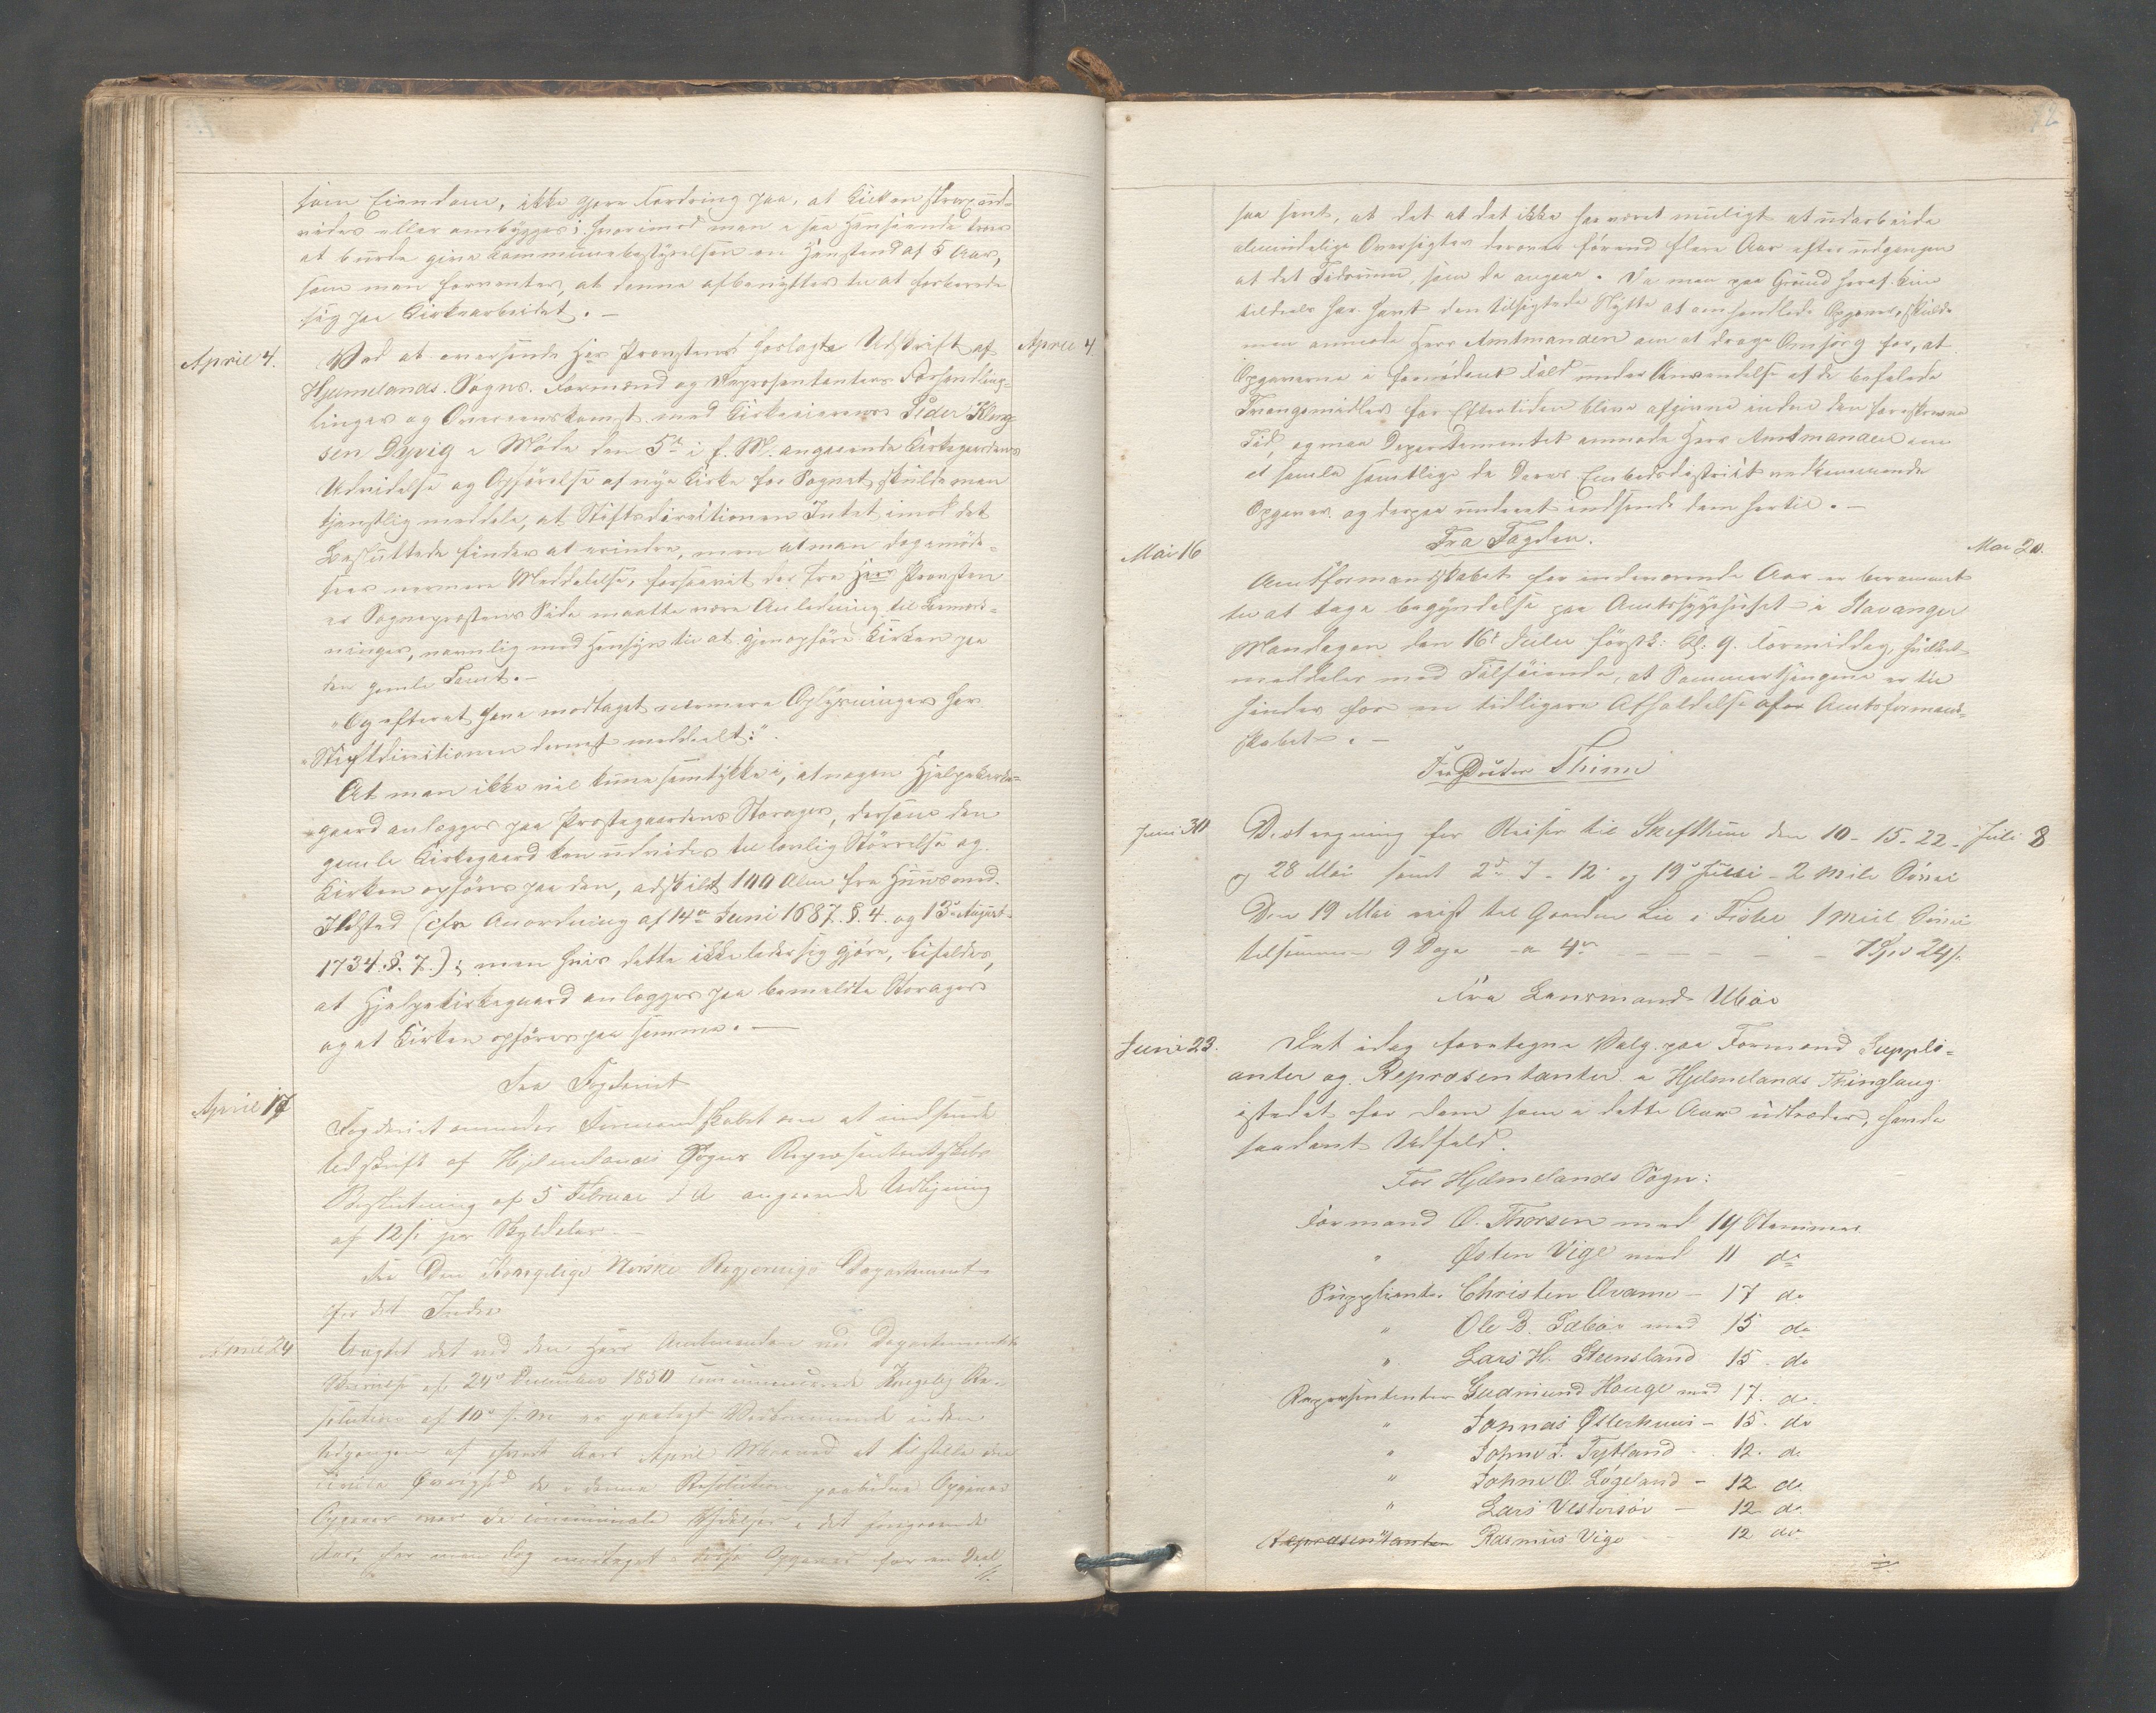 som Eiendom, ikke gjøre Fordring paa, at Kirken strax ud-
vides eller ombygges; hvorimod man i saa Henseende troer
at burde give Kommunebestyrelsen en Henstand af 5 Aar,
som man forventer, at denne afbenytter til at forberede
sig paa Kirkearbeidet. —
April 4. Ved at oversende Hr Provstens Udskrift af April 4.
Hjelmelands Sogns Formænd og Repræsentanters Forhandlin-
linger og Overeenskomst med Kirkeeieren Peder
sen Dyvig i Møde den 5te i f. M. angaaende Kirkegaardens
Udvidelse og Opførelse af nye Kirke for Sognet, skulde man
tjenstlig meddele, at Stiftsdirectionen Intet imod det
Besluttede finder at erindre, men at man dog imøde-
seer nærmere Meddelelse, forsaavit der fra Herr Provsten
er Sognepræstens Side maatte være Anledning til Bemærk-
ninger, navnlig med Hensyn til at gjenopføre Kirken paa
den gamle Tomt. —
"Og efterat have modtaget nærmere Oplysninger har
"Stiftdirectionen dernæst meddeelt:"
At man ikke vil kunne samtykke i, at nogen Hjelpekirke-
gaard anlægges paa Præstegaardens Storager, dersom den
gamle Kirkegaard kan udvides til lovlig Størrelse og
Kirken opføres paa den, adskilt 100 Alen fra Huus med
Ildsted (cfr Anordning af 14de Juni 1687. §. 4. og 13de August
1734. §. 7.); men hvis dette ikke lader sig gjøre, bifaldes,
at Hjelpekirkegaard anlægges paa bemeldte Storager
og at Kirken opføres paa samme. —
Fra Fogderiet
April 17 Fogderiet anmoder Formandskabet om at indsende
Udskrift af Hjelmelands Sogns Repræsentantskabs
Beslutning af 5 Februar d. A. angaaende Udligning
af 12 s. pr Skylddaler —
Fra Den Kongelige Norske Regjerings Departement
for det Indre
April 24 Uagtet det ved den Herr Amtmanden ved Departementets
Skrivelse af 24de December 1850 communicerede Kongelig Re-
solution af 10de s. M. er paalagt Vedkommende inden
Udgangen af hvert Aars April Maaned at tilstille den
Øvrighed de i denne Resolution paabudne Opgaver
Opgaver over de communale Udgifter i det foregaaende
Aar, har man dog modtaget disse Opgaver for en Deel
saa seent, at det at det ikke har været muligt at udarbeide
almindelige Oversigter derover førend flere Aar efter Udgangen
at det Tidsrum, som de angaae. Da man paa Grund heraf kun
tildeels har havt den tilsigtede Nytte af omhandlede Opgaver, skulde
man anmode Herr Amtmanden om at drage Omsorg for, at
Opgaverne i fornødent Fald under Anvendelse af de befalede
Tvangsmidler for Eftertiden blive afgivne inden den foreskrevne
Tid, og maa Departementet anmode Herr Amtmanden om
at samle samtlige de Deres Embedsdistrict vedkommende
Opgaver og derpaa underet indsende dem hertil. —
Fra Fogden.
Mai 16 Mai 20.
Amtsformandskabet for indeværende Aar er berammet
til at tage begyndelse paa Amtssygehuset i Stavanger
Mandagen den 16de Julii førstk: Kl: 9. Formiddag, hvilket
meddeles med Tilføiende, at Sommerthingene er til
Hinder for en tidligere Afholdelse af Amtsformand-
skabet. —
Fra Doctor Thinn
Juni 30 Diætregning for Reiser til Skifthun den 10 - 15 - 22 - Juli 8
og 28 Mai samt 2de 7 - 12 og 19de Juni - 2 Mile Søvei
Den 19 Mai reist til Gaarden Lie i Fister 1 Miil Søvei
tilsammen 9 Dage - a 4 - - - - - 7 Spd 24 s.
Fra Lensmand Ubøe
Juni 23. Det idag foretagne Valg paa Formænd Supple-
anter og Repræsentanter i Hjelmelands Thinglaug
istedet for dem som i dette Aar udtræder, havde
saadant Udfald.
For Hjelmelands Sogn:
Formænd O. Thorsen med 19 Stemmer
" Østen Vige med 11 do
Suppleanter Christen Qvame — 17 do
" Ole B. Sæbøe med 15 do
" Lars H. Steensland 15 do
Repræsentanter Gudmund Hauge med 17. do
" Johnas Østerhuus — 15. do
" Johne L. Tytland 12. do
" Johne O. Løgeland — 12 do
" Lars Vestersøe — 12 do
Repræsentanter Rasmus Vige — 12 do